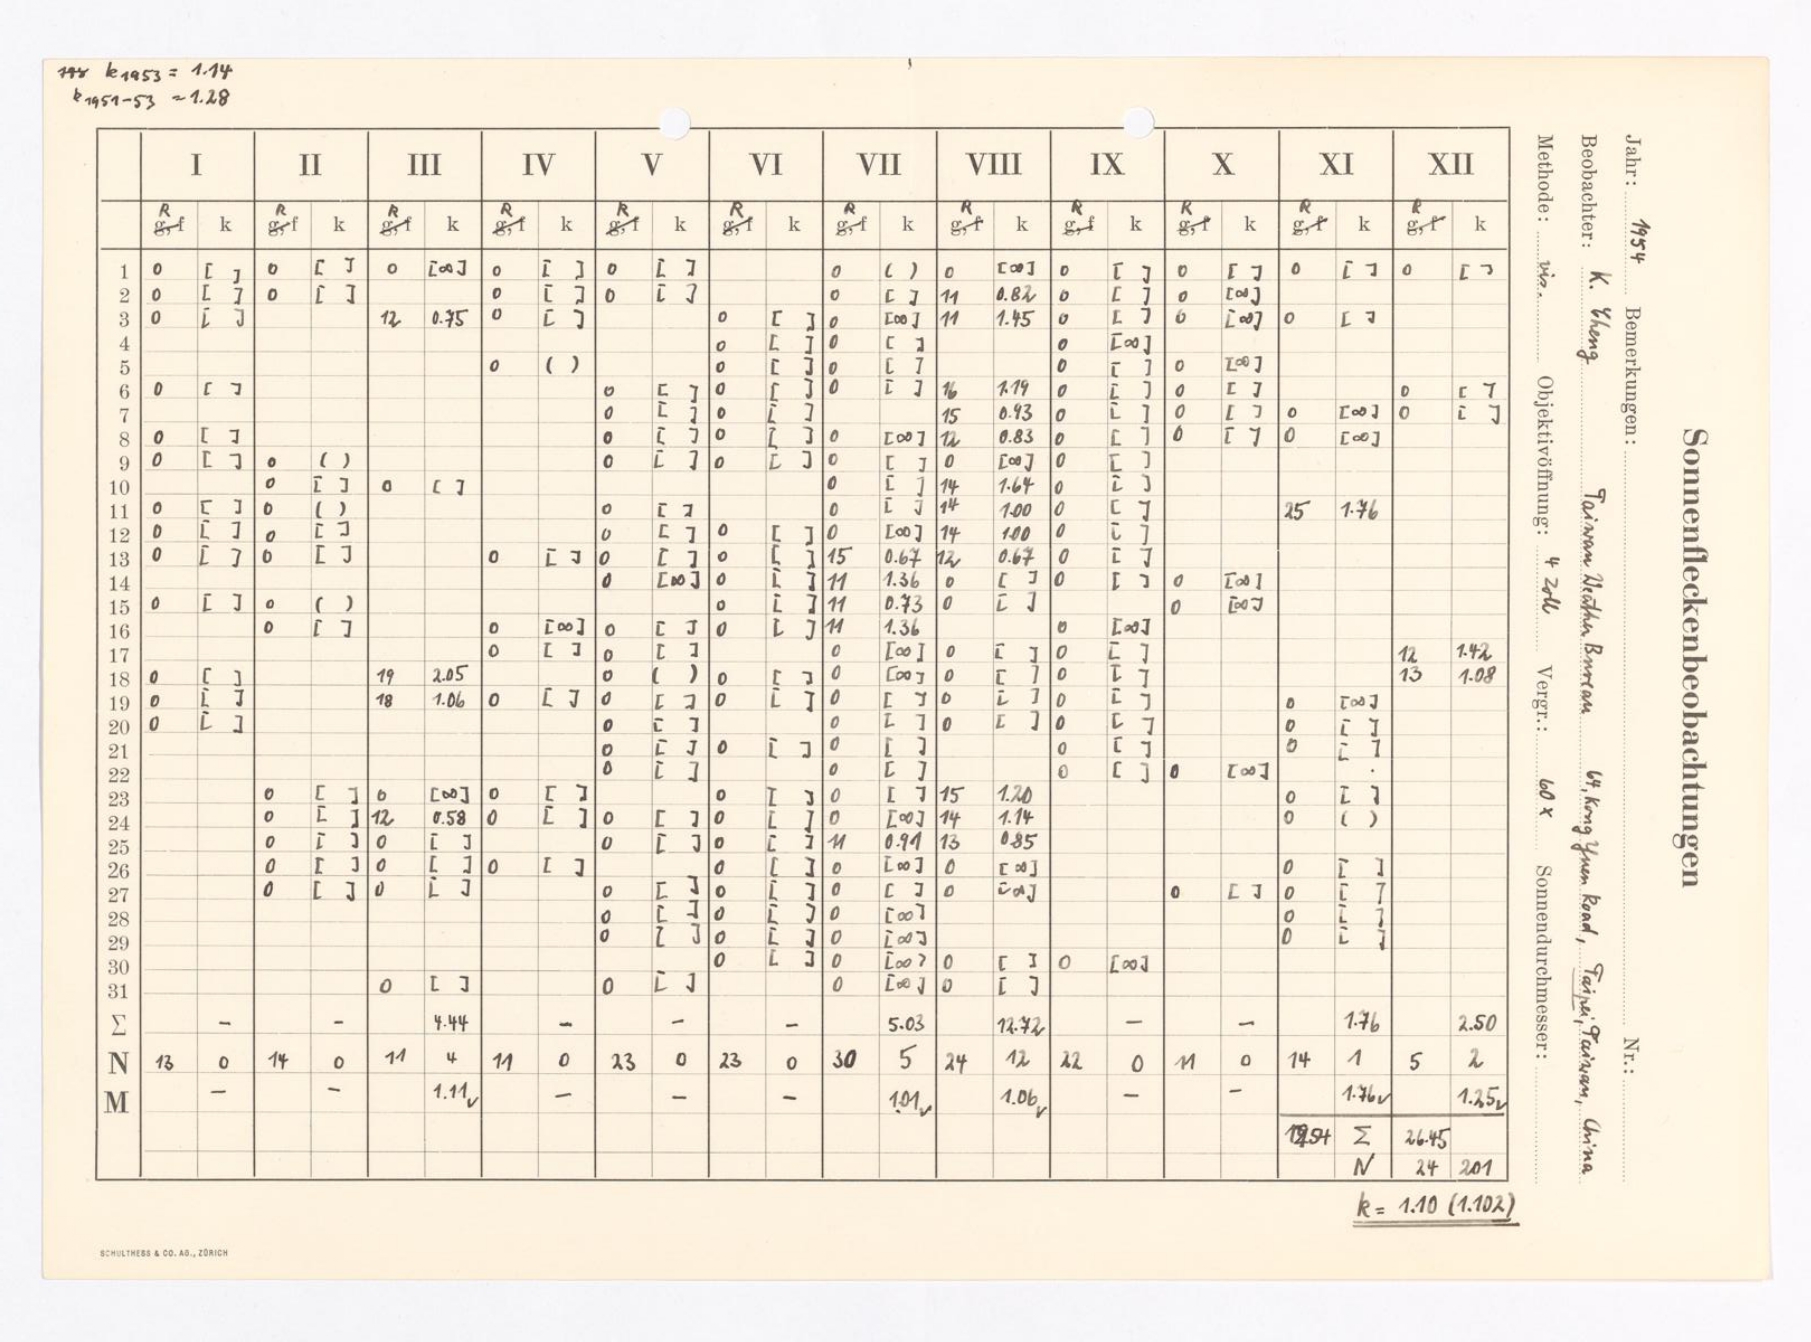 198 k1953 = 1.14
k1951-53 = 1.28
Sonnenfleckenbeobachtungen
Jahr: 1954 Bemerkungen: Nr.:
Beobachter: K. Cheng Taiwan Weather Bureau 64, Kong Yuen Road, Taipei, Taiwan, China
Methode: vis. Objektivöffnung: 4 Zoll Vergr.: 60x Sonnendurchmesser:
I II III IV V VI VII VIII IX X XI XII
R R R R R R R R R R R R
g,f k g,f k g,f k g,f k g,f k g,f k g,f k g,f k g,f k g,f k g,f k g,f k
1 0 [ ] 0 [ ] 0 [∞] 0 [ ] 0 [ ] 0 ( ) 0 [∞] 0 [ ] 0 [ ] 0 [ ] 0 [ ]
2 0 [ ] 0 [ ] 0 [ ] 0 [ ] 0 [ ] 11 0.82 0 [ ] 0 [∞]
3 0 [ ] 12 0.75 0 [ ] 0 [ ] 0 [∞] 11 1.45 0 [ ] 0 [∞] 0 [ ]
4 0 [ ] 0 [ ] 0 [∞]
5 0 ( ) 0 [ ] 0 [ ] 0 [ ] 0 [∞]
6 0 [ ] 0 [ ] 0 [ ] 0 [ ] 16 1.19 0 [ ] 0 [ ] 0 [ ]
7 0 [ ] 0 [ ] 15 0.93 0 [ ] 0 [ ] 0 [∞] 0 [ ]
8 0 [ ] 0 [ ] 0 [ ] 0 [∞] 12 0.83 0 [ ] 0 [ ] 0 [∞]
9 0 [ ] 0 ( ) 0 [ ] 0 [ ] 0 [ ] 0 [∞] 0 [ ]
10 0 [ ] 0 [ ] 0 [ ] 14 1.64 0 [ ]
11 0 [ ] 0 ( ) 0 [ ] 0 [ ] 14 1.00 0 [ ] 25 1.76
12 0 [ ] 0 [ ] 0 [ ] 0 [ ] 0 [∞] 14 1.00 0 [ ]
13 0 [ ] 0 [ ] 0 [ ] 0 [ ] 0 [ ] 15 0.67 12 0.67 0 [ ]
14 0 [∞] 0 [ ] 11 1.36 0 [ ] 0 [ ] 0 [∞]
15 0 [ ] 0 ( ) 0 [ ] 11 0.73 0 [ ] 0 [∞]
16 0 [ ] 0 [∞] 0 [ ] 0 [ ] 11 1.36 0 [∞]
17 0 [ ] 0 [ ] 0 [∞] 0 [ ] 0 [ ] 12 1.42
18 0 [ ] 19 2.05 0 ( ) 0 [ ] 0 [∞] 0 [ ] 0 [ ] 13 1.08
19 0 [ ] 18 1.06 0 [ ] 0 [ ] 0 [ ] 0 [ ] 0 [ ] 0 [ ] 0 [∞]
20 0 [ ] 0 [ ] 0 [ ] 0 [ ] 0 [ ] 0 [ ]
21 0 [ ] 0 [ ] 0 [ ] 0 [ ] 0 [ ]
22 0 [ ] 0 [ ] 0 [ ] 0 [∞]
23 0 [ ] 0 [∞] 0 [ ] 0 [ ] 0 [ ] 15 1.20 0 [ ]
24 0 [ ] 12 0.58 0 [ ] 0 [ ] 0 [ ] 0 [∞] 14 1.14 0 ( )
25 0 [ ] 0 [ ] 0 [ ] 0 [ ] 11 0.91 13 0.85
26 0 [ ] 0 [ ] 0 [ ] 0 [ ] 0 [∞] 0 [∞] 0 [ ]
27 0 [ ] 0 [ ] 0 [ ] 0 [ ] 0 [ ] 0 [∞] 0 [ ] 0 [ ]
28 0 [ ] 0 [ ] 0 [∞] 0 [ ]
29 0 [ ] 0 [ ] 0 [∞] 0 [ ]
30 0 [ ] 0 [∞] 0 [ ] 0 [∞]
31 0 [ ] 0 [ ] 0 [∞] 0 [ ]
Σ – – 4.44 – – – 5.03 12.72 – – 1.76 2.50
N 13 0 14 0 11 4 11 0 23 0 23 0 30 5 24 12 22 0 11 0 14 1 5 2
M – – 1.11 – – – 1.01 1.06 – – 1.76 1.25
1954 Σ 26.45
N 24 201
k = 1.10 (1.102)
SCHULTHESS & CO. AG., ZÜRICH